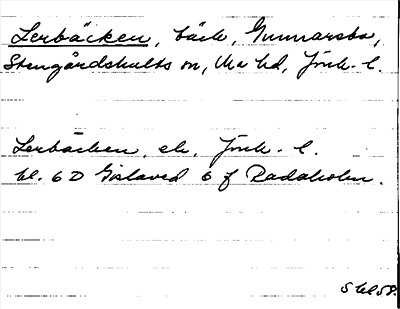 Lerbäcken, bäck, Gunnarsbo,
Stengårdshults sn, Mo hd, Jönk. l.
Lerbäcken, ek, Jönk. l.
bl. 6 D Gislaved 6 f Radaholm.
S bl 58.